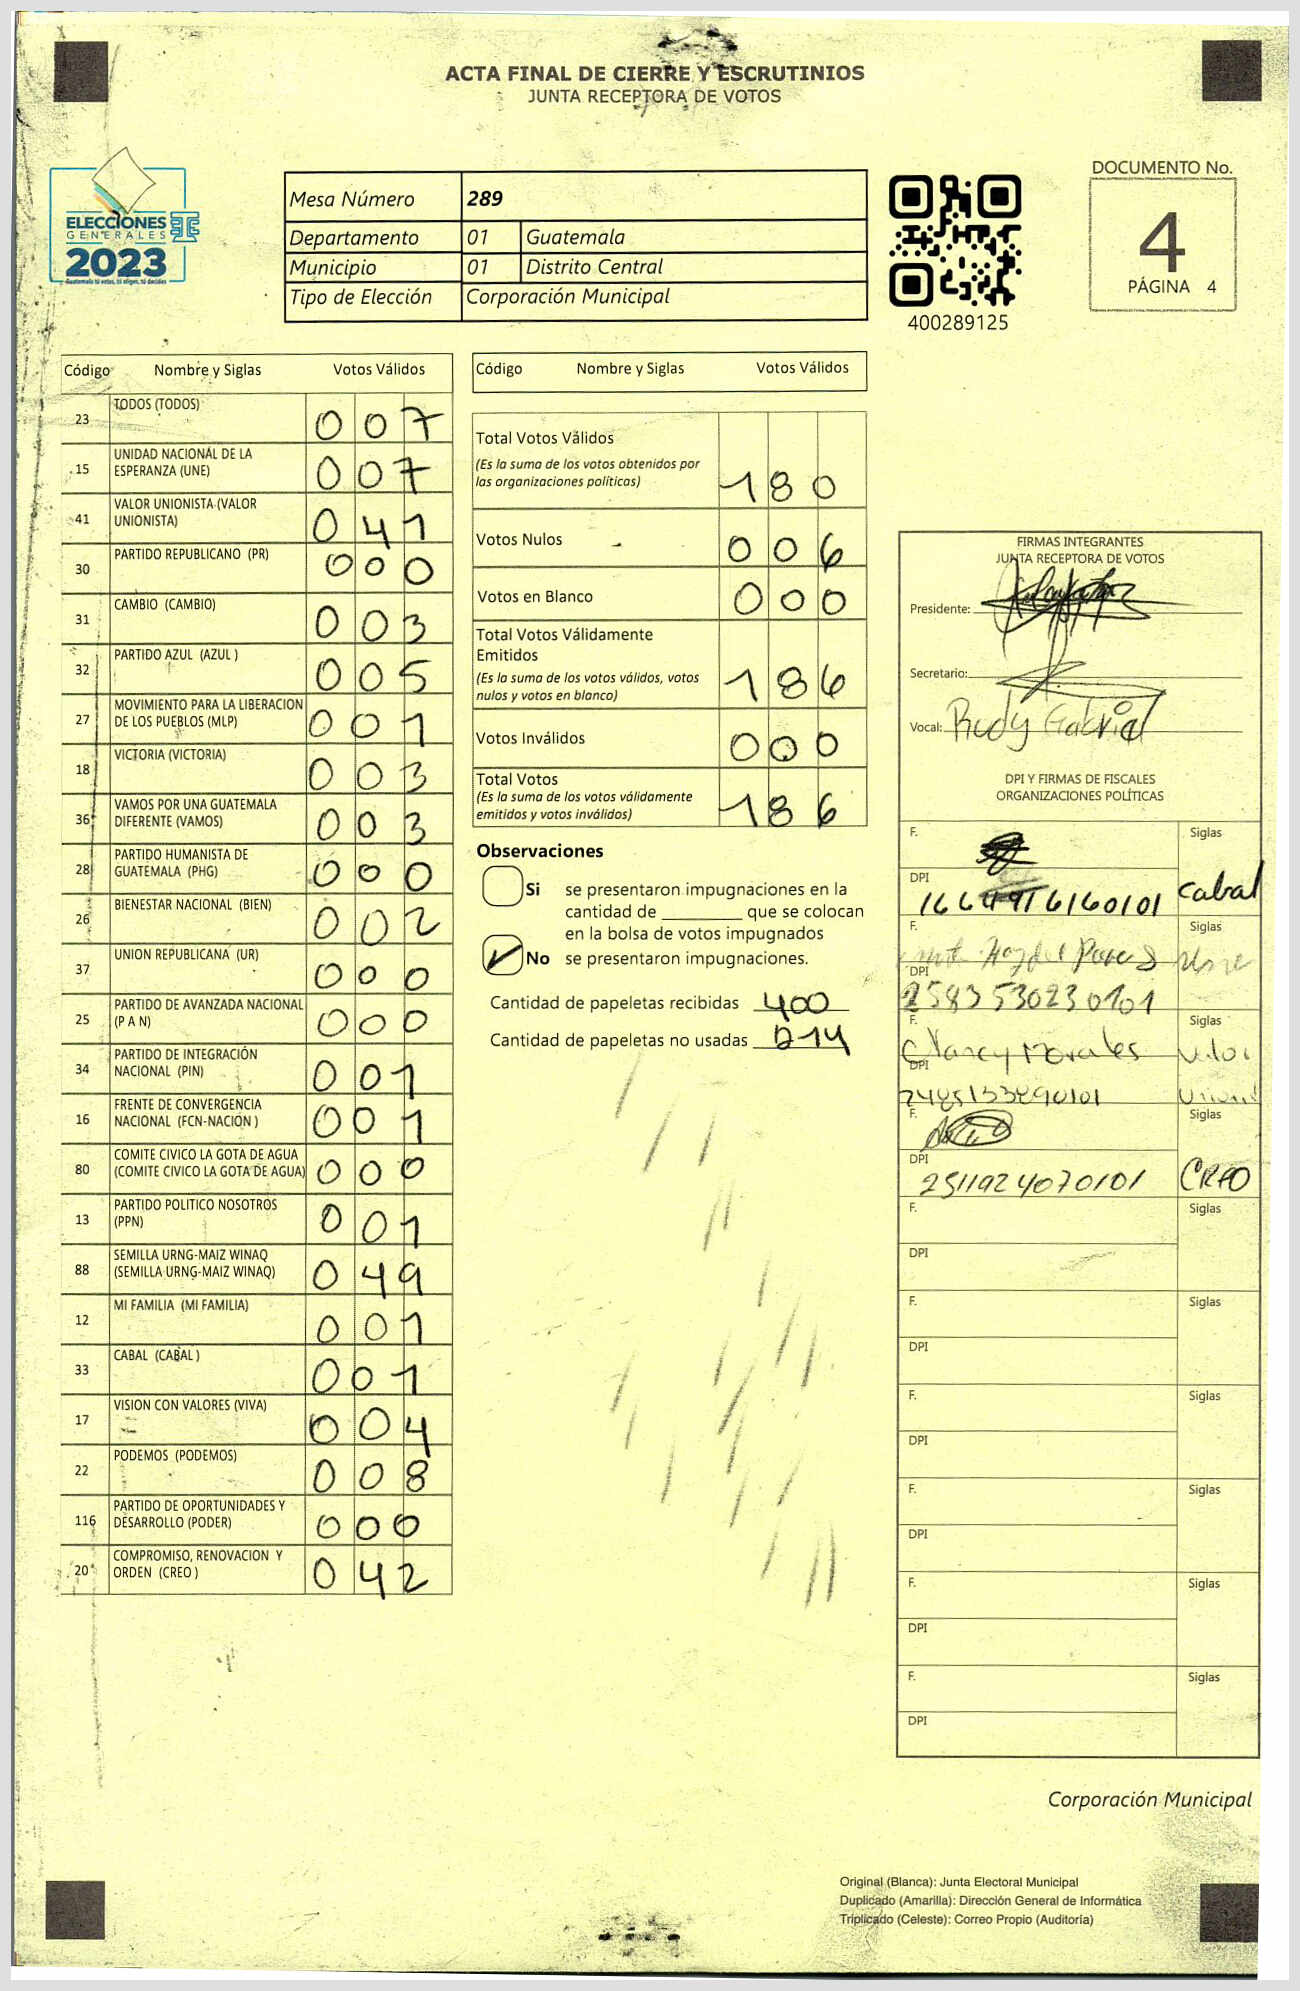 ACTA FINAL DE CIERRE Y ESCRUTINIOS
JUNTA RECEPTORA DE VOTOS
ELECCIONES
GENERALES
2023
Guatemala tú votas, tú eliges, tú decides
Mesa Número 289
Departamento 01 Guatemala
Municipio 01 Distrito Central
Tipo de Elección Corporación Municipal
400289125
DOCUMENTO No.
4
PÁGINA 4
Código Nombre y Siglas Votos Válidos
23 TODOS (TODOS) 007
15 UNIDAD NACIONAL DE LA
ESPERANZA (UNE) 007
41 VALOR UNIONISTA (VALOR
UNIONISTA) 041
30 PARTIDO REPUBLICANO (PR) 000
31 CAMBIO (CAMBIO) 003
32 PARTIDO AZUL (AZUL ) 005
27 MOVIMIENTO PARA LA LIBERACION
DE LOS PUEBLOS (MLP) 001
18 VICTORIA (VICTORIA) 003
36 VAMOS POR UNA GUATEMALA
DIFERENTE (VAMOS) 003
28 PARTIDO HUMANISTA DE
GUATEMALA (PHG) 000
26 BIENESTAR NACIONAL (BIEN) 002
37 UNION REPUBLICANA (UR) 000
25 PARTIDO DE AVANZADA NACIONAL
(P A N) 000
34 PARTIDO DE INTEGRACIÓN
NACIONAL (PIN) 001
16 FRENTE DE CONVERGENCIA
NACIONAL (FCN-NACION ) 001
80 COMITE CIVICO LA GOTA DE AGUA
(COMITE CIVICO LA GOTA DE AGUA) 000
13 PARTIDO POLITICO NOSOTROS
(PPN) 001
88 SEMILLA URNG-MAIZ WINAQ
(SEMILLA URNG-MAIZ WINAQ) 049
12 MI FAMILIA (MI FAMILIA) 001
33 CABAL (CABAL ) 001
17 VISION CON VALORES (VIVA) 004
22 PODEMOS (PODEMOS) 008
116 PARTIDO DE OPORTUNIDADES Y
DESARROLLO (PODER) 000
20 COMPROMISO, RENOVACION Y
ORDEN (CREO ) 042
Código Nombre y Siglas Votos Válidos
Total Votos Válidos
(Es la suma de los votos obtenidos por
las organizaciones políticas) 180
Votos Nulos 006
Votos en Blanco 000
Total Votos Válidamente
Emitidos
(Es la suma de los votos válidos, votos
nulos y votos en blanco) 186
Votos Inválidos 000
Total Votos
(Es la suma de los votos válidamente
emitidos y votos inválidos) 186
Observaciones
Si se presentaron impugnaciones en la
cantidad de ________ que se colocan
en la bolsa de votos impugnados
No se presentaron impugnaciones.
Cantidad de papeletas recibidas 400
Cantidad de papeletas no usadas 214
FIRMAS INTEGRANTES
JUNTA RECEPTORA DE VOTOS
Presidente:
Secretario:
Vocal: Rudy Gabriel
DPI Y FIRMAS DE FISCALES
ORGANIZACIONES POLÍTICAS
F. Siglas
DPI Cabal
F. Siglas
DPI
2583530230101
F. Siglas
Nancy Morales Valor
DPI
F. Siglas
DPI
2511924070101 CREO
F. Siglas
DPI
F. Siglas
DPI
F. Siglas
DPI
F. Siglas
DPI
F. Siglas
DPI
F. Siglas
DPI
Corporación Municipal
Original (Blanca): Junta Electoral Municipal
Duplicado (Amarilla): Dirección General de Informática
Triplicado (Celeste): Correo Propio (Auditoría)